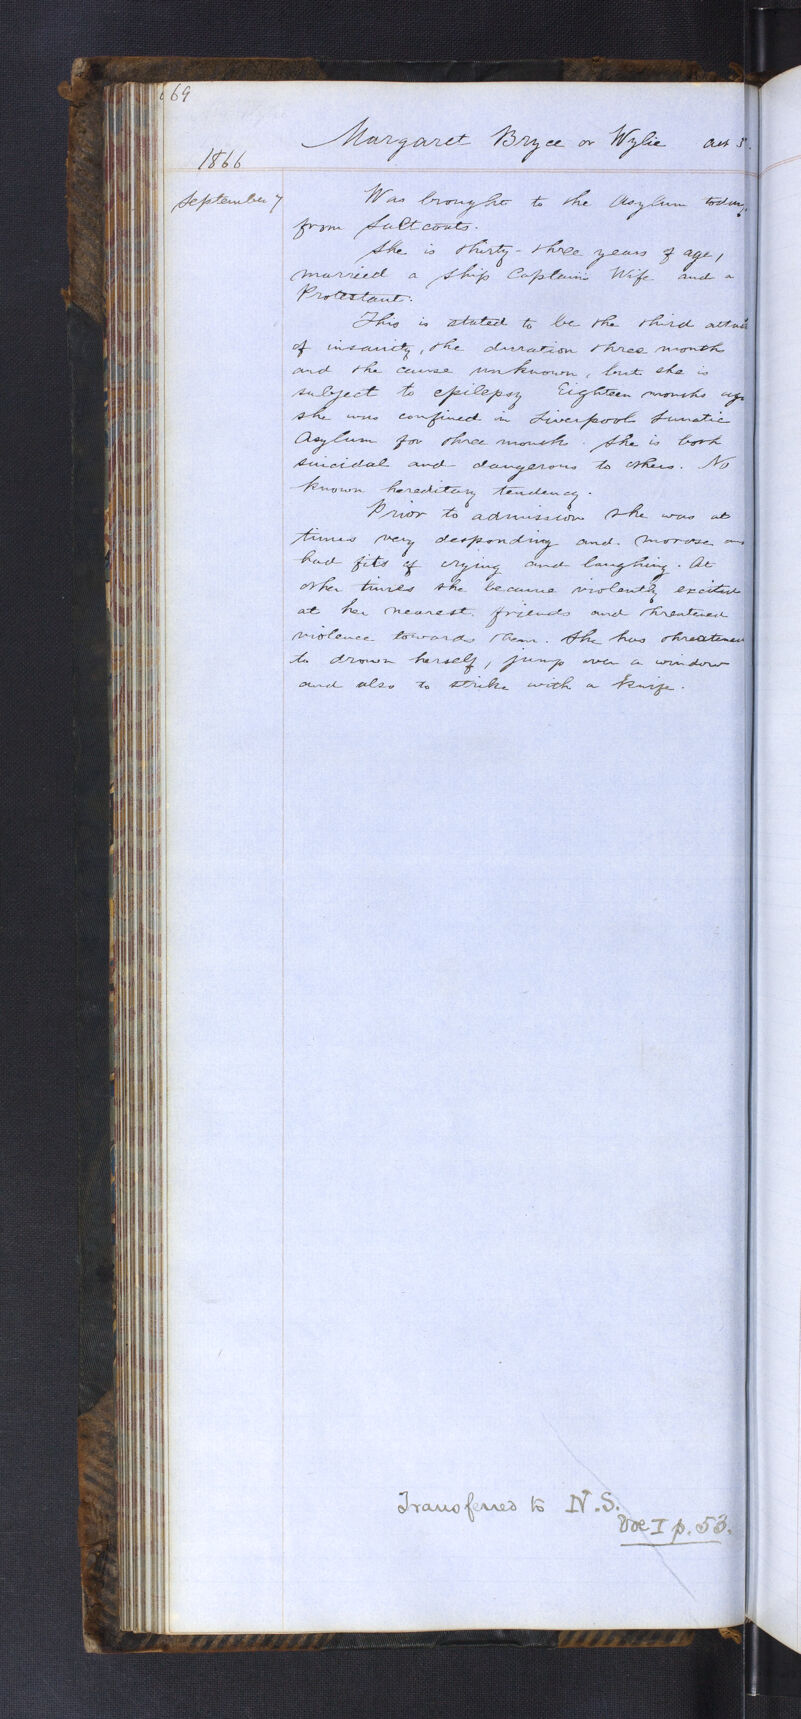 69
Margaret Bryce or Wylie aet 3
1866
September 7 Was brought to the Asylum today
from Saltcoats.
She is thirty-three years of age,
married a Ship Captain's Wife and a
Protestant.
This is stated to be the third attack
of insanity, the duration three month
and the cause unknown, but she is
subject to epilepsy Eighteen months ago
she was confined in Liverpool Lunatic
Asylum for three month. She is both
suicidal and dangerous to others. No
known hereditary tendency.
Prior to admission she was at
times very desponding and morose and
had fits of crying and laughing. At
other times she became violently excited
at her nearest friends and threatened
violence towards them. She has threatened
to drown herself, jump over a window
and also to strike with a knife.
Transferred to N.S.
Vol I p. 53.